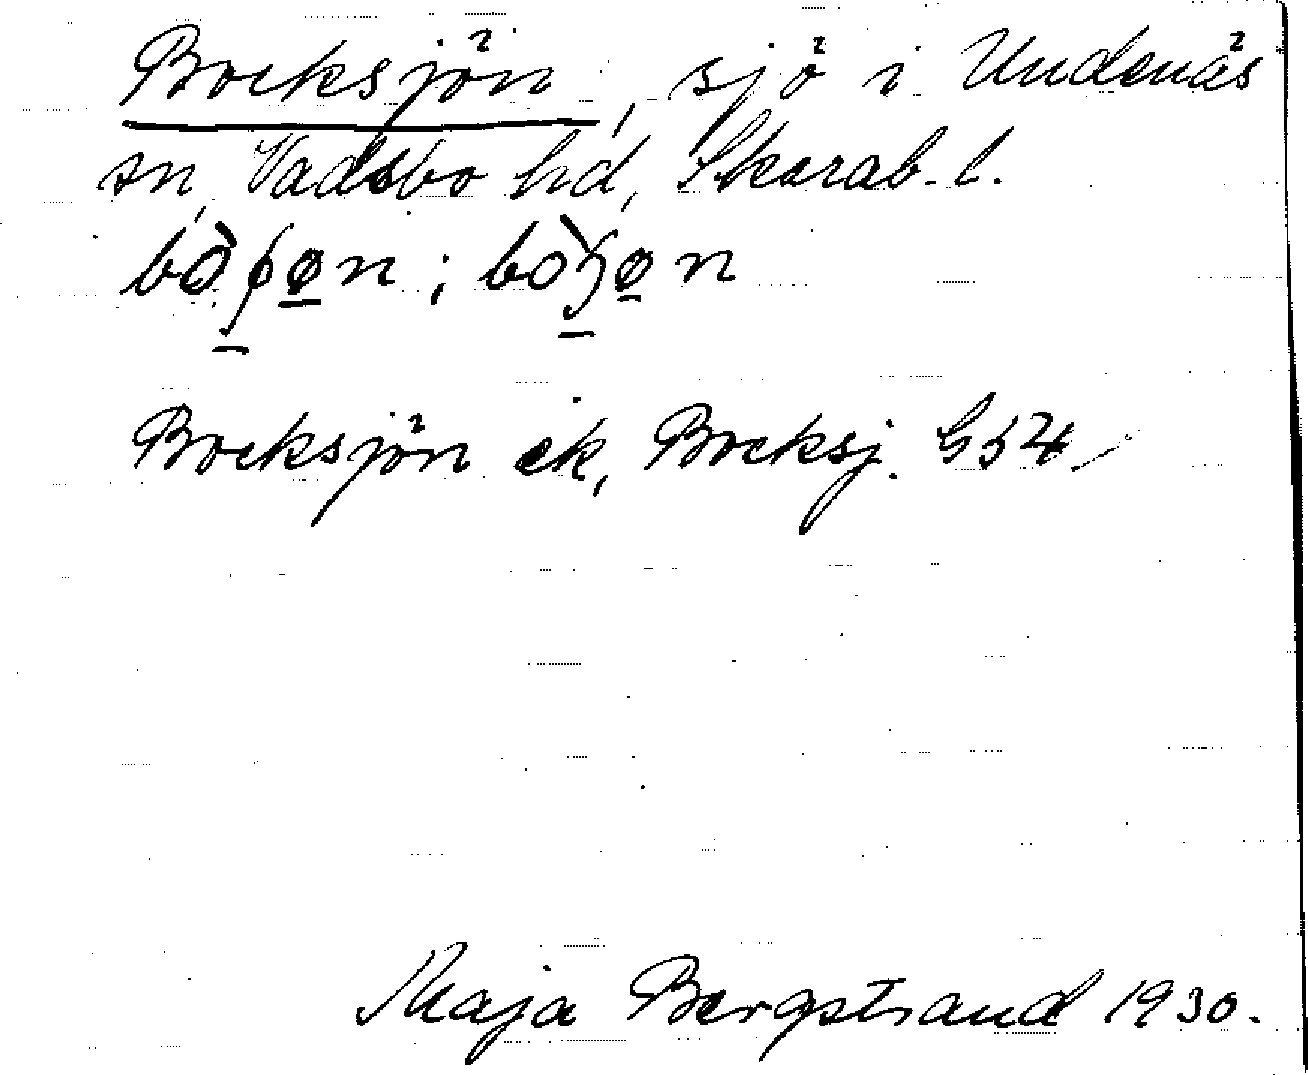 Bocksjön, sjö i Undenäs
sn, Vadsbo hd, Skarab. l.
Bocksjön ek, Bocksj. G54
Maja Bergstrand 1930.